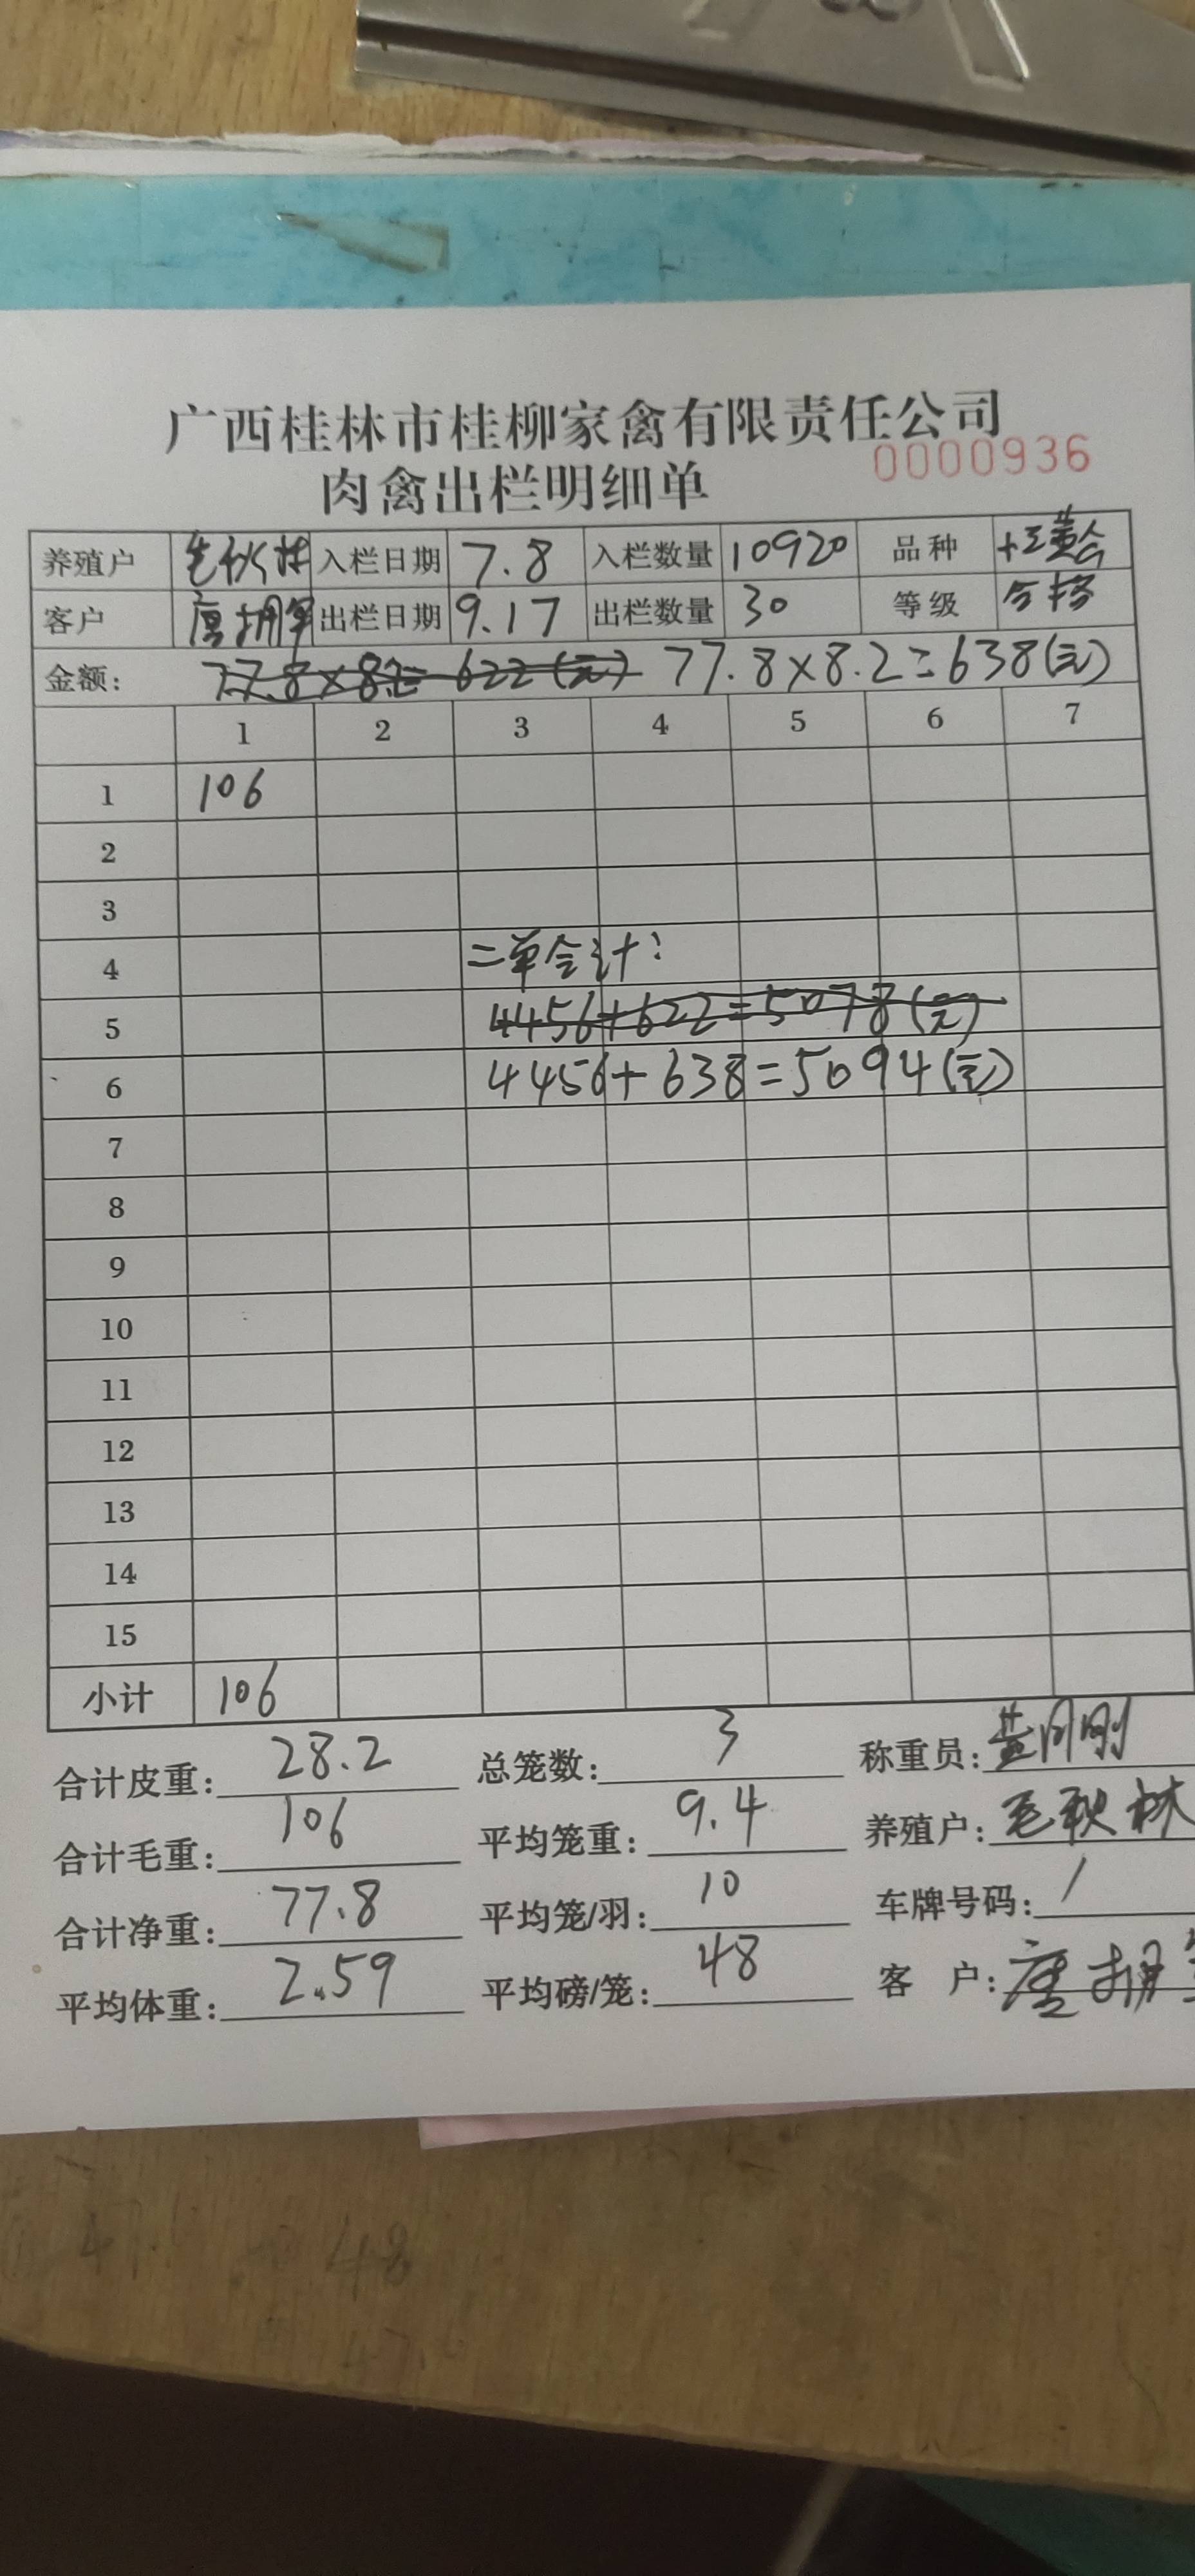 广西桂林市桂柳家禽有限责任公司
肉禽出栏明细单 0000936
养殖户 毛秋林 入栏日期 7.8 入栏数量 10920 品种
客户 唐拥军 出栏日期 9.17 出栏数量 30 等级 合格
金额: 77.8×8.2=622(元) 77.8×8.2=638(元)
1 2 3 4 5 6 7
1 106
2
3
4 二单合计:
5 4456+622=5078(元)
6 4456+638=5094(元)
7
8
9
10
11
12
13
14
15
小计 106
合计皮重: 28.2 总笼数: 3 称重员:
合计毛重: 106 平均笼重: 9.4 养殖户: 毛秋林
合计净重: 77.8 平均笼/羽: 10 车牌号码: /
平均体重: 2.59 平均磅/笼: 48 客 户: 唐拥军